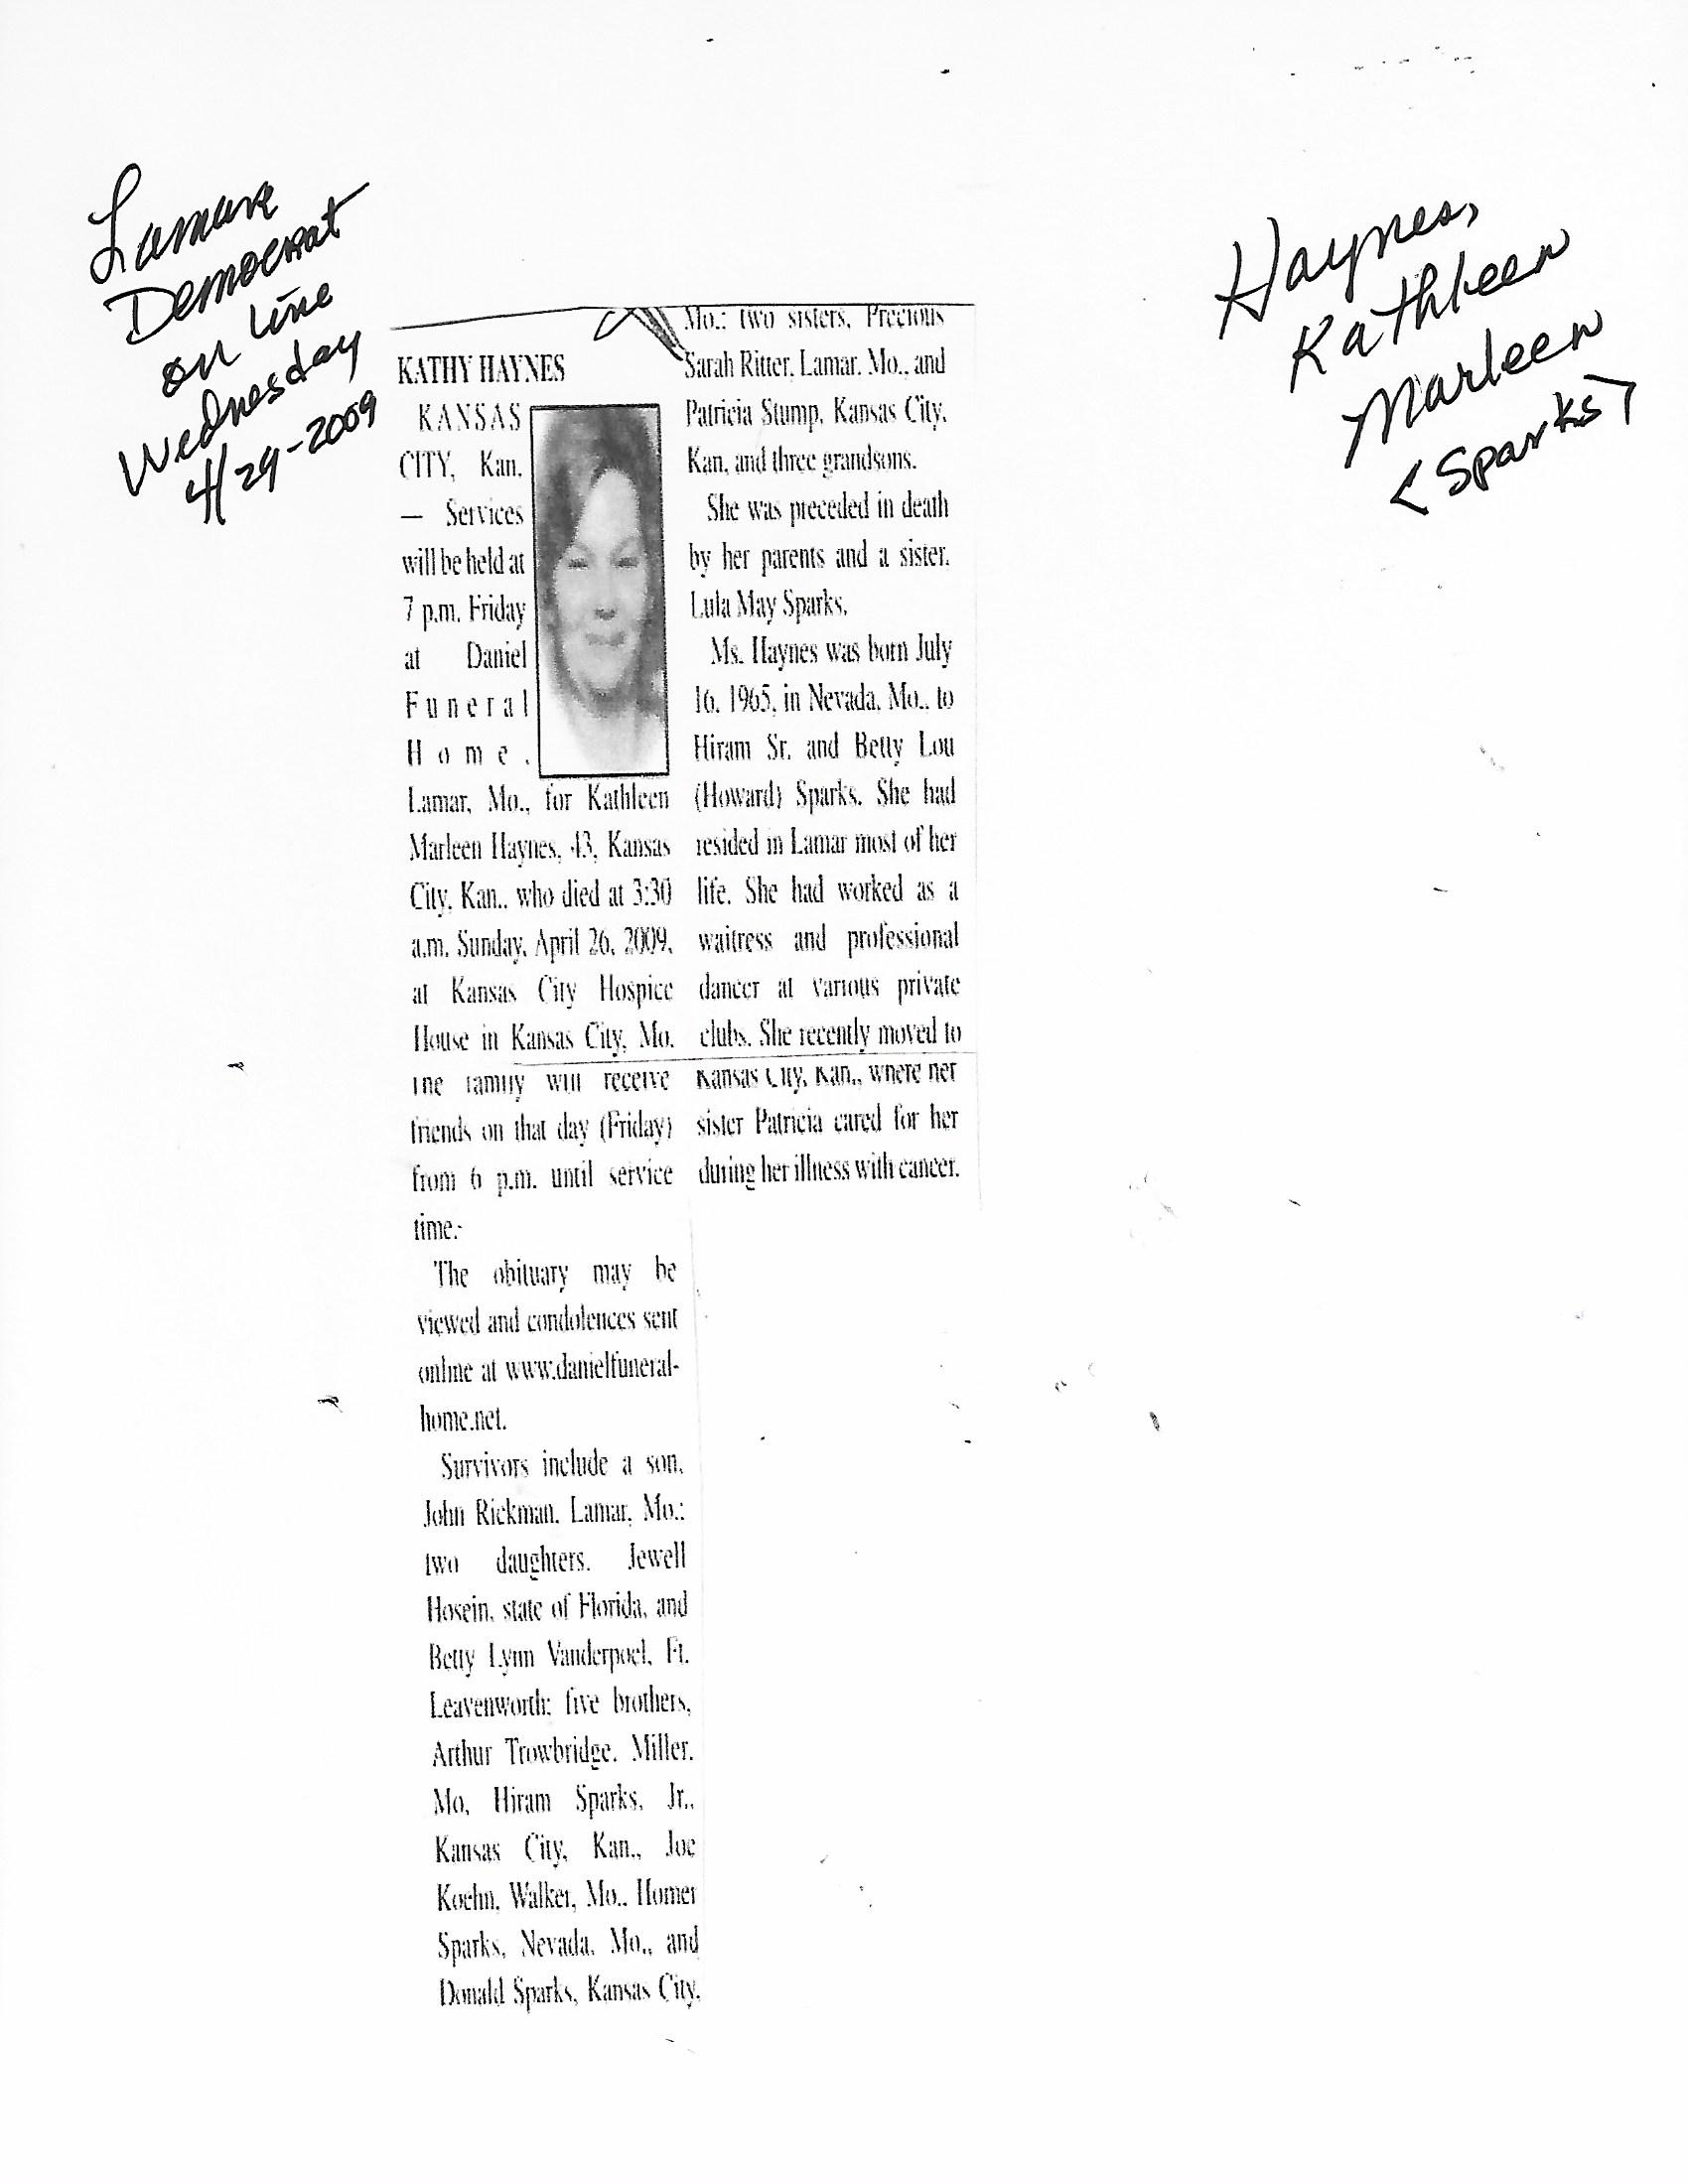 Lamar
Democrat
on line
Wednesday
4/29-2009
Haynes,
Kathleen
Marleen
<Sparks>
KATHY HAYNES
KANSAS
CITY, Kan.
— Services
will be held at
7 p.m. Friday
at Daniel
Funeral
Home,
Lamar, Mo., for Kathleen
Marleen Haynes, 43, Kansas
City, Kan., who died at 3:30
a.m. Sunday, April 26, 2009,
at Kansas City Hospice
House in Kansas City, Mo.
The family will receive
friends on that day (Friday)
from 6 p.m. until service
time.
The obituary may be
viewed and condolences sent
online at www.danielfuneral-
home.net.
Survivors include a son,
John Rickman, Lamar, Mo.;
two daughters, Jewell
Hosein, state of Florida, and
Betty Lynn Vanderpoel, Ft.
Leavenworth; five brothers,
Arthur Trowbridge, Miller,
Mo, Hiram Sparks, Jr.,
Kansas City, Kan., Joe
Koehn, Walker, Mo., Homer
Sparks, Nevada, Mo., and
Donald Sparks, Kansas City,
Mo.; two sisters, Precious
Sarah Ritter, Lamar, Mo., and
Patricia Stump, Kansas City,
Kan, and three grandsons.
She was preceded in death
by her parents and a sister,
Lula May Sparks.
Ms. Haynes was born July
16, 1965, in Nevada, Mo., to
Hiram Sr. and Betty Lou
(Howard) Sparks. She had
resided in Lamar most of her
life. She had worked as a
waitress and professional
dancer at various private
clubs. She recently moved to
Kansas City, Kan., where her
sister Patricia cared for her
during her illness with cancer.